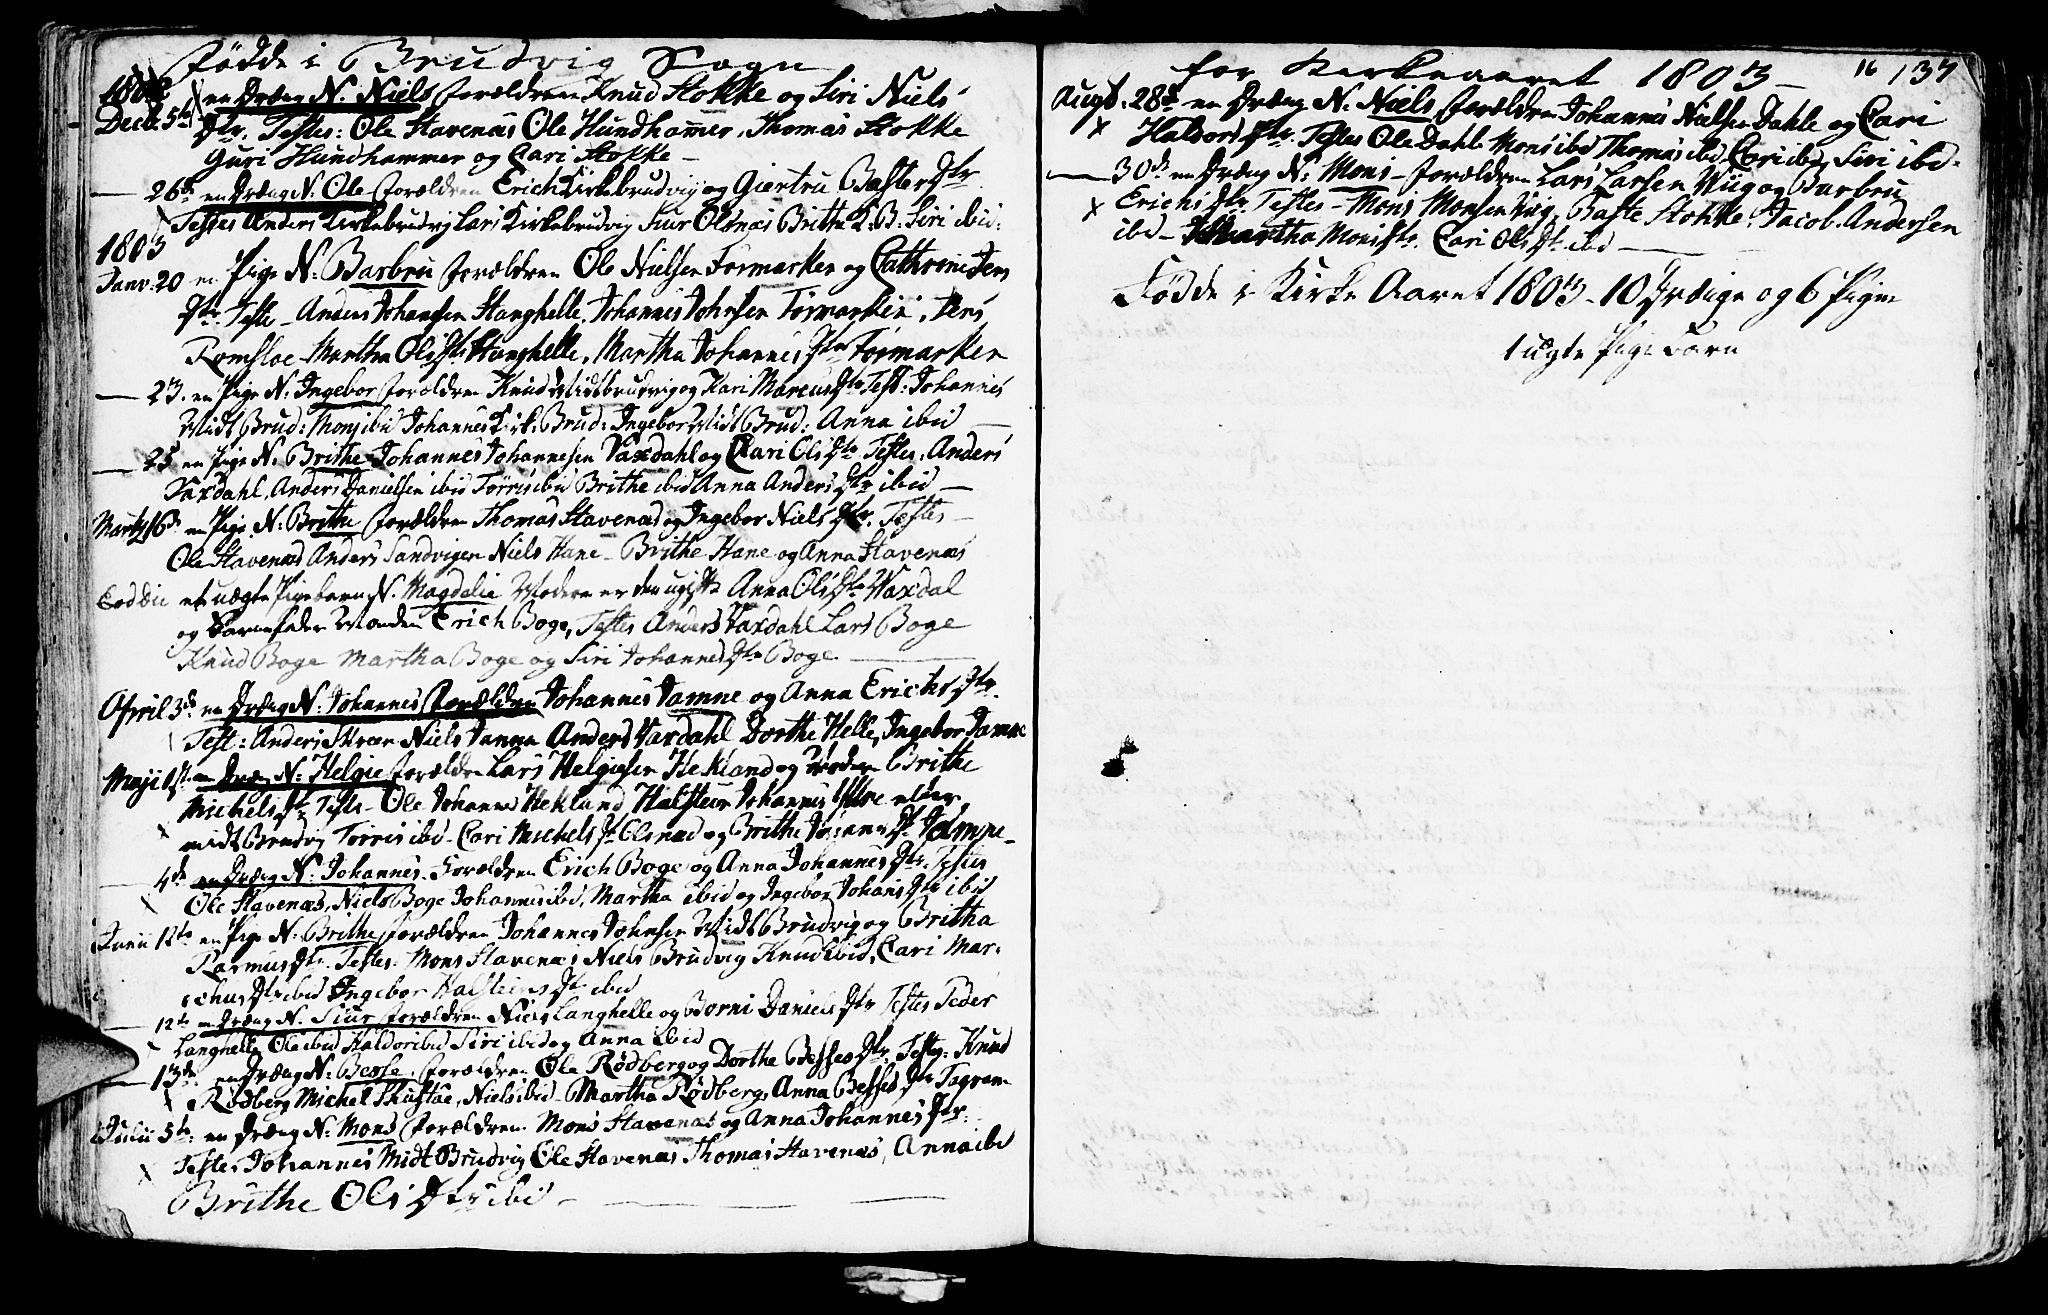 Fødde i Brudvig Sogn
1802 en Dræng N. Niels forældren Knud Stokke og Siri Niels
Decbr: 5te Dtr. Testes: Ole Stavenæs Ole Hundhammer, Thomas Stokke
Guri Hundhammer og Cari Stokke —
— 26de en Dræng N: Ole forældren Erich Kirkebrudvig og Giertru Baste Dtr
Testes Anders Kirkebrudvig Lars Kirkebrudvig Siur Olsnæs Britha K.B. Siri ibid:
1803
Janv: 20 en Pige N: Barbru forældren Ole Nielsen Formarken og Cathrine Jens
Dtr. Teste – Anders Johansen Stanghelle, Johannes Johnsen Formarken, Jens
Romsloe Martha Olis Dtr Stanghelle, Martha Johannes Dtr Formarken
— 23. en Pige N: Ingebor forældren Knud Midtbrudvig og Kari Marcus Dtr Test: Johannes
Midt Brud: Mons ibid Johannes Kirk: Brud: Ingebor Midt Brud: Anna ibid —
— 25 en Pige N: Brithe Johannes Johannesen Vaxdahl og Cari Olis Dtr Testes, Anders
Vaxdahl, Anders Danielsen ibid Torris ibid Brithe ibid Anna Anders Dtr ibid —
Martz 16de en Pige N: Brithe forældren Thomas Stavenæs og Ingebor Niels Dtr. Testes —
Ole Stavenæs Anders Sandvigen Niels Hane – Brithe Hane og Anna Stavenæs
Eod die et uægte Pigebarn N. Magdelie Moderen er den ugifte Anna Olis Dtr Waxdal
og Barnefader Manden Erich Boge, Testes Anders Vaxdahl Lars Boge
Knud Boge Martha Boge og Siri Johannes Dtr Boge —
April 3de en Dræng N: Johannes forældren Johannes Jamne og Anna Erichs Dtr.
Test: Anders Skræn Niels Jamne Anders Vaxdahl Dorthe Helle, Ingebor Jamne
Maji 1st. en Dræng N: Helgie forældren Lars Helgiesen Hekland og Moderen Brithe
Michels Dtr Testes – Ole Johannes Hekland Halsteen Johannes
midt Brudvig Torris ibid – Cari Michels Dtr Olsnæs og Brithe Johannes Dtr Jamne –
4de en Dræng N: Johannes. Forældren Erich Boge og Anna Johannes Dtr. Testes
Ole Stavenæs, Niels Boge Johannes ibid, Martha ibid og Ingebor Johanis Dtr ibid
Junii 12te en Pige N: Brithe forældren Johannes Johnsen Midt Brudvig og Britha
Rasmus Dtr. Testes. Mons Stavenæs Niels Brudvig Knud ibid, Cari Mar:
chus Dtr ibid Ingebor Halsteins Dtr ibid
— 12te en Dræng N. Siur forældren Niels Langhelle og Borni Daniels Dtr Testes Peder
Langhelle Ole ibid Haldor ibid Siri ibid og Anna ibid
— 13de en Dræng N: Besse. forældren Ole Rødberg og Dorthe Besses Dtr, Testes: Knud
Rødberg Michel Skustøe, Niels ibid – Martha Rødberg, Anna Besses Dtr
Julii 5te: en Dræng N: Mons forældren Mons Stavenæs og Anna Johannes Dtr.
Testes Johannes Midt Brudvig Ole Stavenæs Thomas Stavenæs, Anna ibd
Brithe Olis Dtr ibid —
for Kirkeaaret 1803 — 16 137
Augst. 28de en Dræng N: Niels forældren Johannes Nielsen Dahle og Cari
Haldors Dtr. Testes Ole Dahl Mons ibid Thomas ibid Cari ibid, Siri ibid.
— 30de en Dræng N: Mons – forældren Lars Larsen Wiig og Barbru
Erichs Dtr Testes – Mons Monsen Viig, Baste Stokke, Jacob Andersen
ibd – Martha Monis Dtr. Cari Olis Dtr ibd —
Fødde i Kirke Aaret 1803 – 10 Drænge og 6 Piger
1 uægte Pige Barn